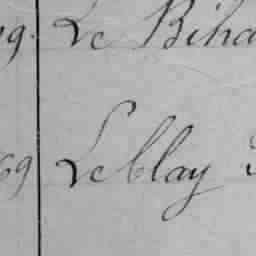 9. Le Biha
69 Le blay